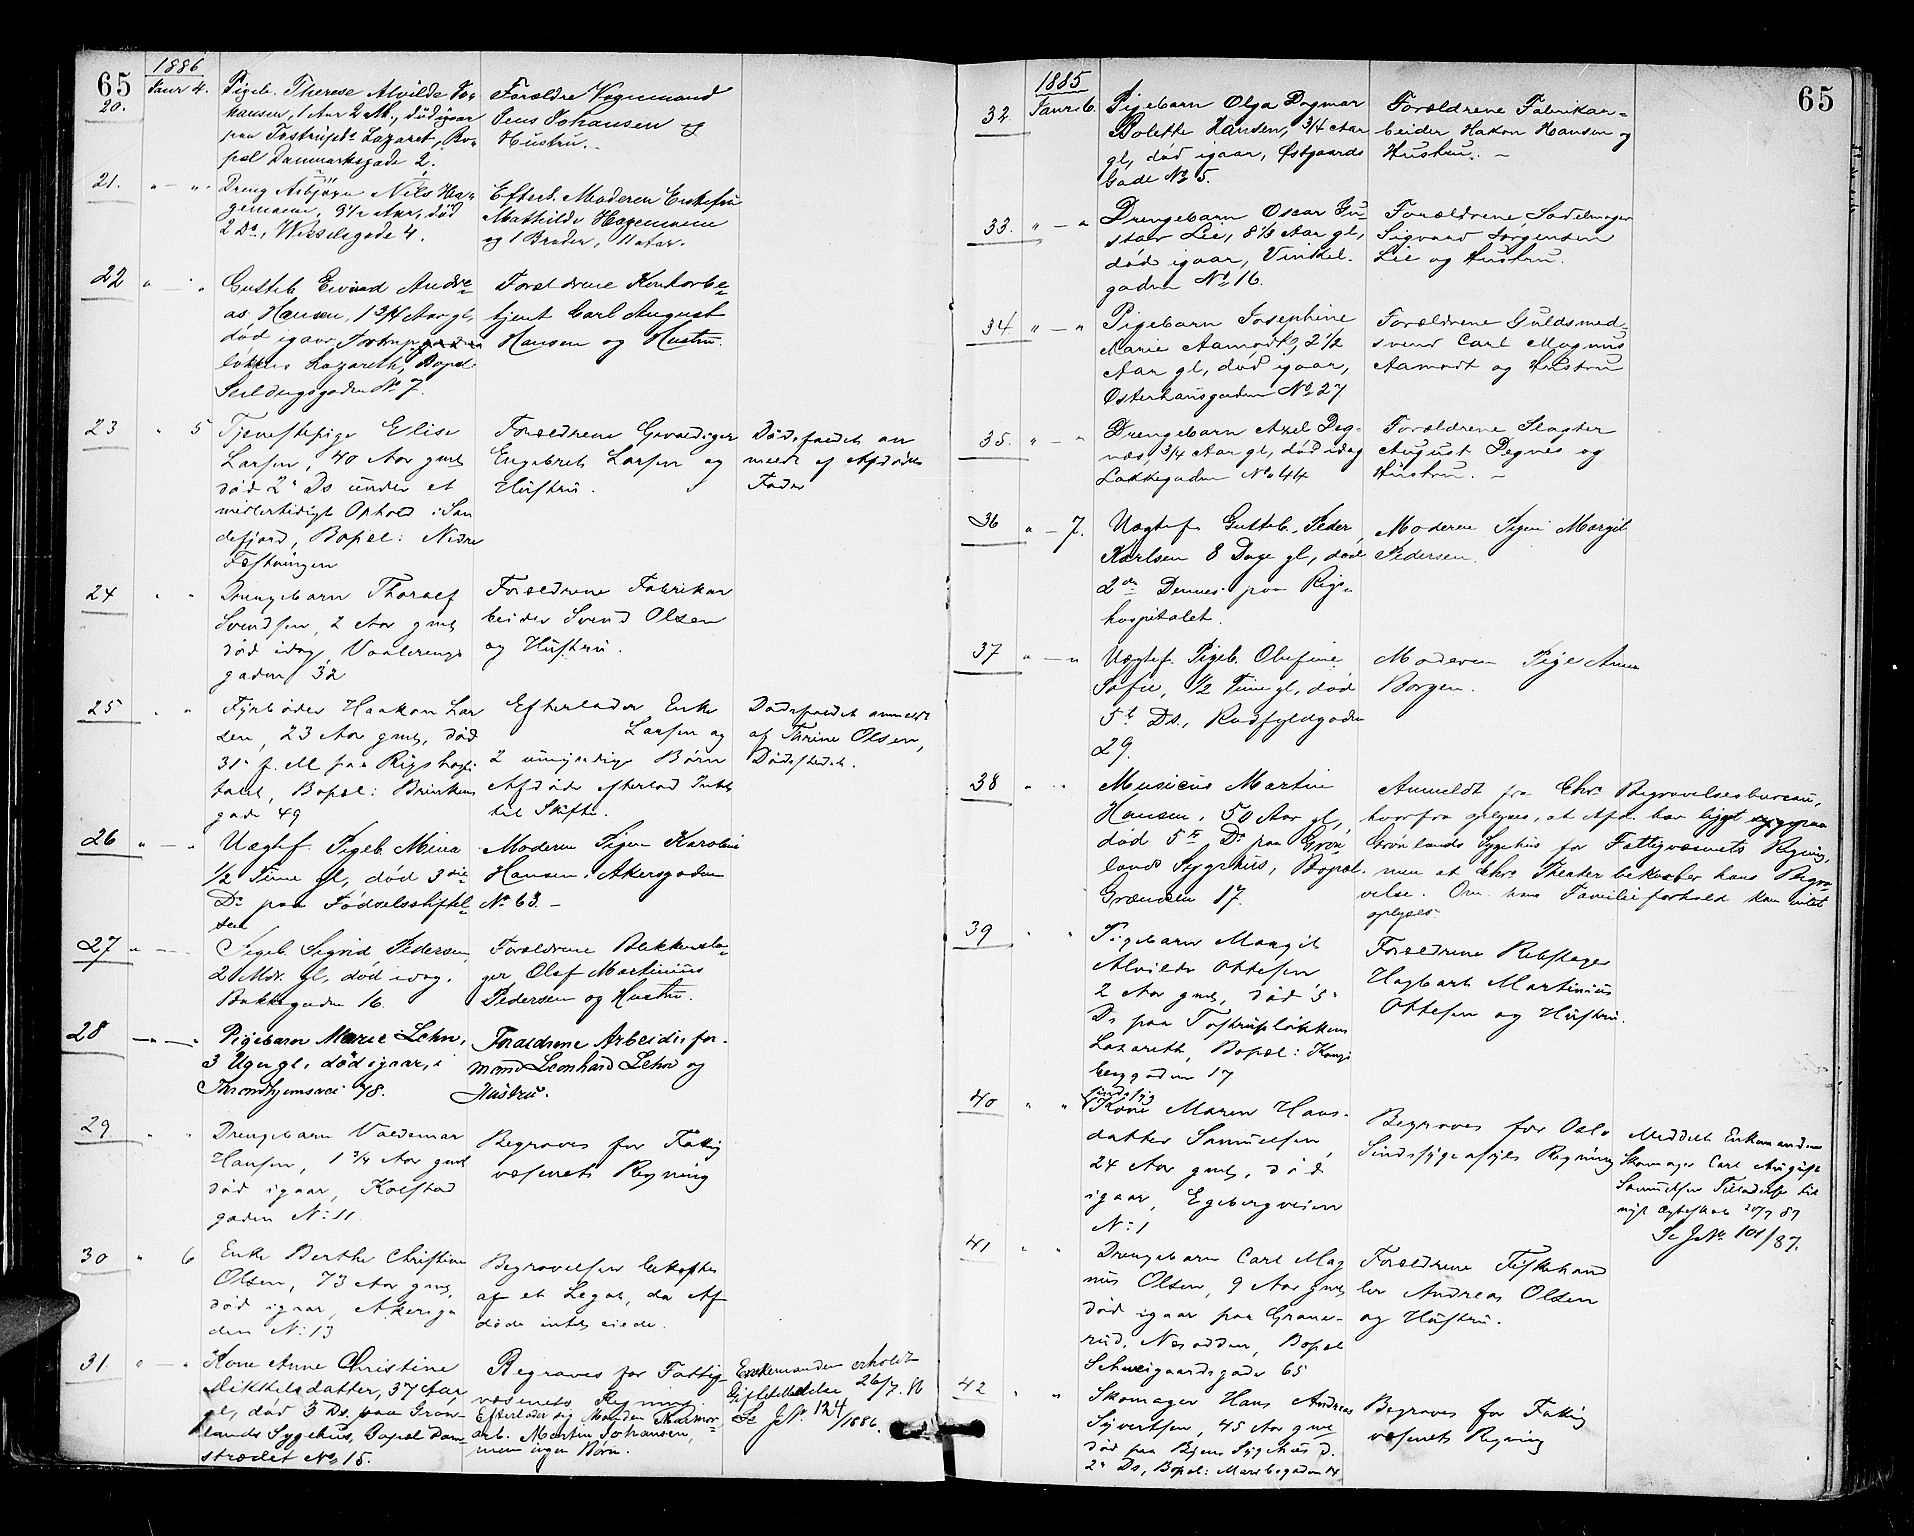 65
1886
20.
Janr 4.
Pigeb. Therese Alvilde Jo-
hansen, 1 Aar 2 M., död igaar
paa Tostrupsl. Lazaret, Bo-
pæl Danmarksgade 2.
Forældre Vognmand
Jens Johansen og
Hustru.
21.
" - "
Dreng Asbjörn Nils Ha-
gemann, 9 1/2 Aar, död
2 Ds., Wesselsgade 4.
Efterl. Moderen Enkefru
Mathilde Hagemann
og 1 Broder, 11 Aar.
22
" - "
Gutteb. Eivind Andre-
as Hansen, 1 3/4 Aar gl,
död igaar, Tostrup
løkkens Lazareth, Bopæl
No 7.
Forældrene Kontorbe-
tjent Carl August
Hansen og Hustru.
23
" 5
Tjenestepige Elise
Larsen, 40 Aar gml
död 2 Ds under et
midlertidigt Ophold i San
defjord, Bopæl: Nedre
Fæstningen
Forældrene Gevaldiger
Engebret Larsen og
Hustru.
Dödsfaldet an
meldt af Afdödes
Fader
24
" "
Drengebarn Thoralf
Svendsen, 2 Aar gml
död idag Vaalerengs
gaden 32
Forældrene Fabrikar
beider Svend Olsen
og Hustru.
25
" "
Fyrböder Haakon Lar
sen, 23 Aar gml, död
31 f. M paa Rigshospi
talet, Bopæl: Brinkens
gade 49
Efterlader Enke
Larsen og
2 umyndige Børn
Afdøde efterlod Intet
til Skifte.
Dødsfaldet anmeldt
af Thrine Olsen,
Dödsstedet.
26
" - "
Uægtef. Pigeb. Mina
1/2 Time gl, død 3die
Ds paa Fødselsstiftel-
sen
Moderen Pigen Karoline
Hansen, Akersgaden
No 63. -
27
" -
Pigeb. Sigrid Pedersen,
2 Mdr. gl, død idag,
Bakkegaden 16.
Forældrene Blikkensla-
ger Olaf Martinius
Pedersen og Hustru.
28
Pigebarn Marie Lehn,
3 Uger gl, død igaar, i
Throndhjemsvei 78.
Forældrene Arbeidsfor-
mand Leonhard Lehn og
Hustru.
29
" "
Drengebarn Valdemar
Hansen, 1 3/4 Aar gml
död igaar, Kolstad
gaden No 11
Begraves for Fattig
væsenets Regning
30
" 6
Enke Berthe Christine
Olsen, 73 Aar gml,
död igaar, Akersga
den No 13
Begravelsen bekostes
af et Legat, da Af
døde intet eiede.
31
" - "
Kone Anne Christine
Mikkelsdatter, 37 Aar
gl, død 3 Ds. paa Grøn-
lands Sygehus, Bopæl Dam-
strædet No 15.
Begraves for Fattig-
væsenets Regning.
Efterlader sig Manden Murmor-
arb. Martin Johansen,
men ingen Børn.
Enkemanden erholdt
Giftetilladelse 26/7. 86
Se JNo. 124/1886.
65
1885
32.
Janr 6.
Pigebarn Olga Dagmar
Bolette Hansen, 3/4 Aar
gl, død igaar, Østgaards
Gade No 5.
Forældrene Fabrikar-
beider Hakon Hansen og
Hustru. -
33.
" - "
Drengebarn Oscar Gu-
stav Lie, 8 1/2 Aar gl,
død igaar, Vinkel-
gaden No 16.
Forældrene Sadelmager
Sigvard Jørgensen
Lie og Hustru.
34
" - "
Pigebarn Josephine
Marie Aamodt, 2 1/2
Aar gl, død igaar,
Osterhausgaden No 27
Forældrene Guldsmed-
svend Carl Magnus
Aamodt og Hustru
35.
" - "
Drengebarn Axel Deg-
næs, 3/4 Aar gl, død idag
Lakkegaden No 44
Forældrene Slagter
August Degnes og
Hustru. -
36
" - 7.
Uægtef. Gutteb. Peder
Karlsen 8 Dage gl, død
2den Dennes paa Rigs-
hospitalet.
Moderen Pigen Margit
Pedersen.
37
" - "
Uægtef. Pigeb. Olufine
Sofie, 1/2 Time gl, død
5t Ds., Rødfyldgaden
29.
Moderen Pige Anna
Borgen.
38
" "
Musicus Martin
Hansen, 50 Aar gl,
død 5te Ds paa Grøn
lands Sygehus, Bopæl.
Grændsen 17.
Anmeldt fra Chra Begravelsesbureau,
hvorfra oplyses, at Afd. har ligget syg paa
Grønlands Sygehus for Fattigvæsenets Regning,
men at Chra Theater bekoster hans Begra-
velse. Om hans Familieforhold kan intet
oplyses.
39
" "
Pigebarn Margit
Alvilde Ottesen
2 Aar gml, död 5
Ds paa Tostrupløkkens
Lazareth, Bopæl: Kongs
berggaden 17
Forældrene Rebslager
Hagbart Martinius
Ottesen og Hustru.
40
" "
sindssyg
Kone Maren Hans-
datter Samuelsen,
24 Aar gml, död
igaar, Egebergveien
No 1
Begraves for Oslo
Sindssygeasyls Regning
Meddelt Enkemanden
Skomager Carl August
Samuelsen Tilladelse til
nyt Ægteskab 20/7 87
Se JNo 101/87.
41
" "
Drengebarn Carl Mag
nus Olsen, 9 Aar gml
död igaar paa Grane-
rud, Nesodden, Bopæl
Schweigaardsgade 65
Forældrene Fiskehand
ler Andreas Olsen
og Hustru.
42
" "
Skomager Hans Andreas
Syvertsen, 45 Aar gml
død paa Byens Sygehus d.
2 Ds, Bopæl: Maribogaden 14
Begraves for Fattig
væsenets Regning